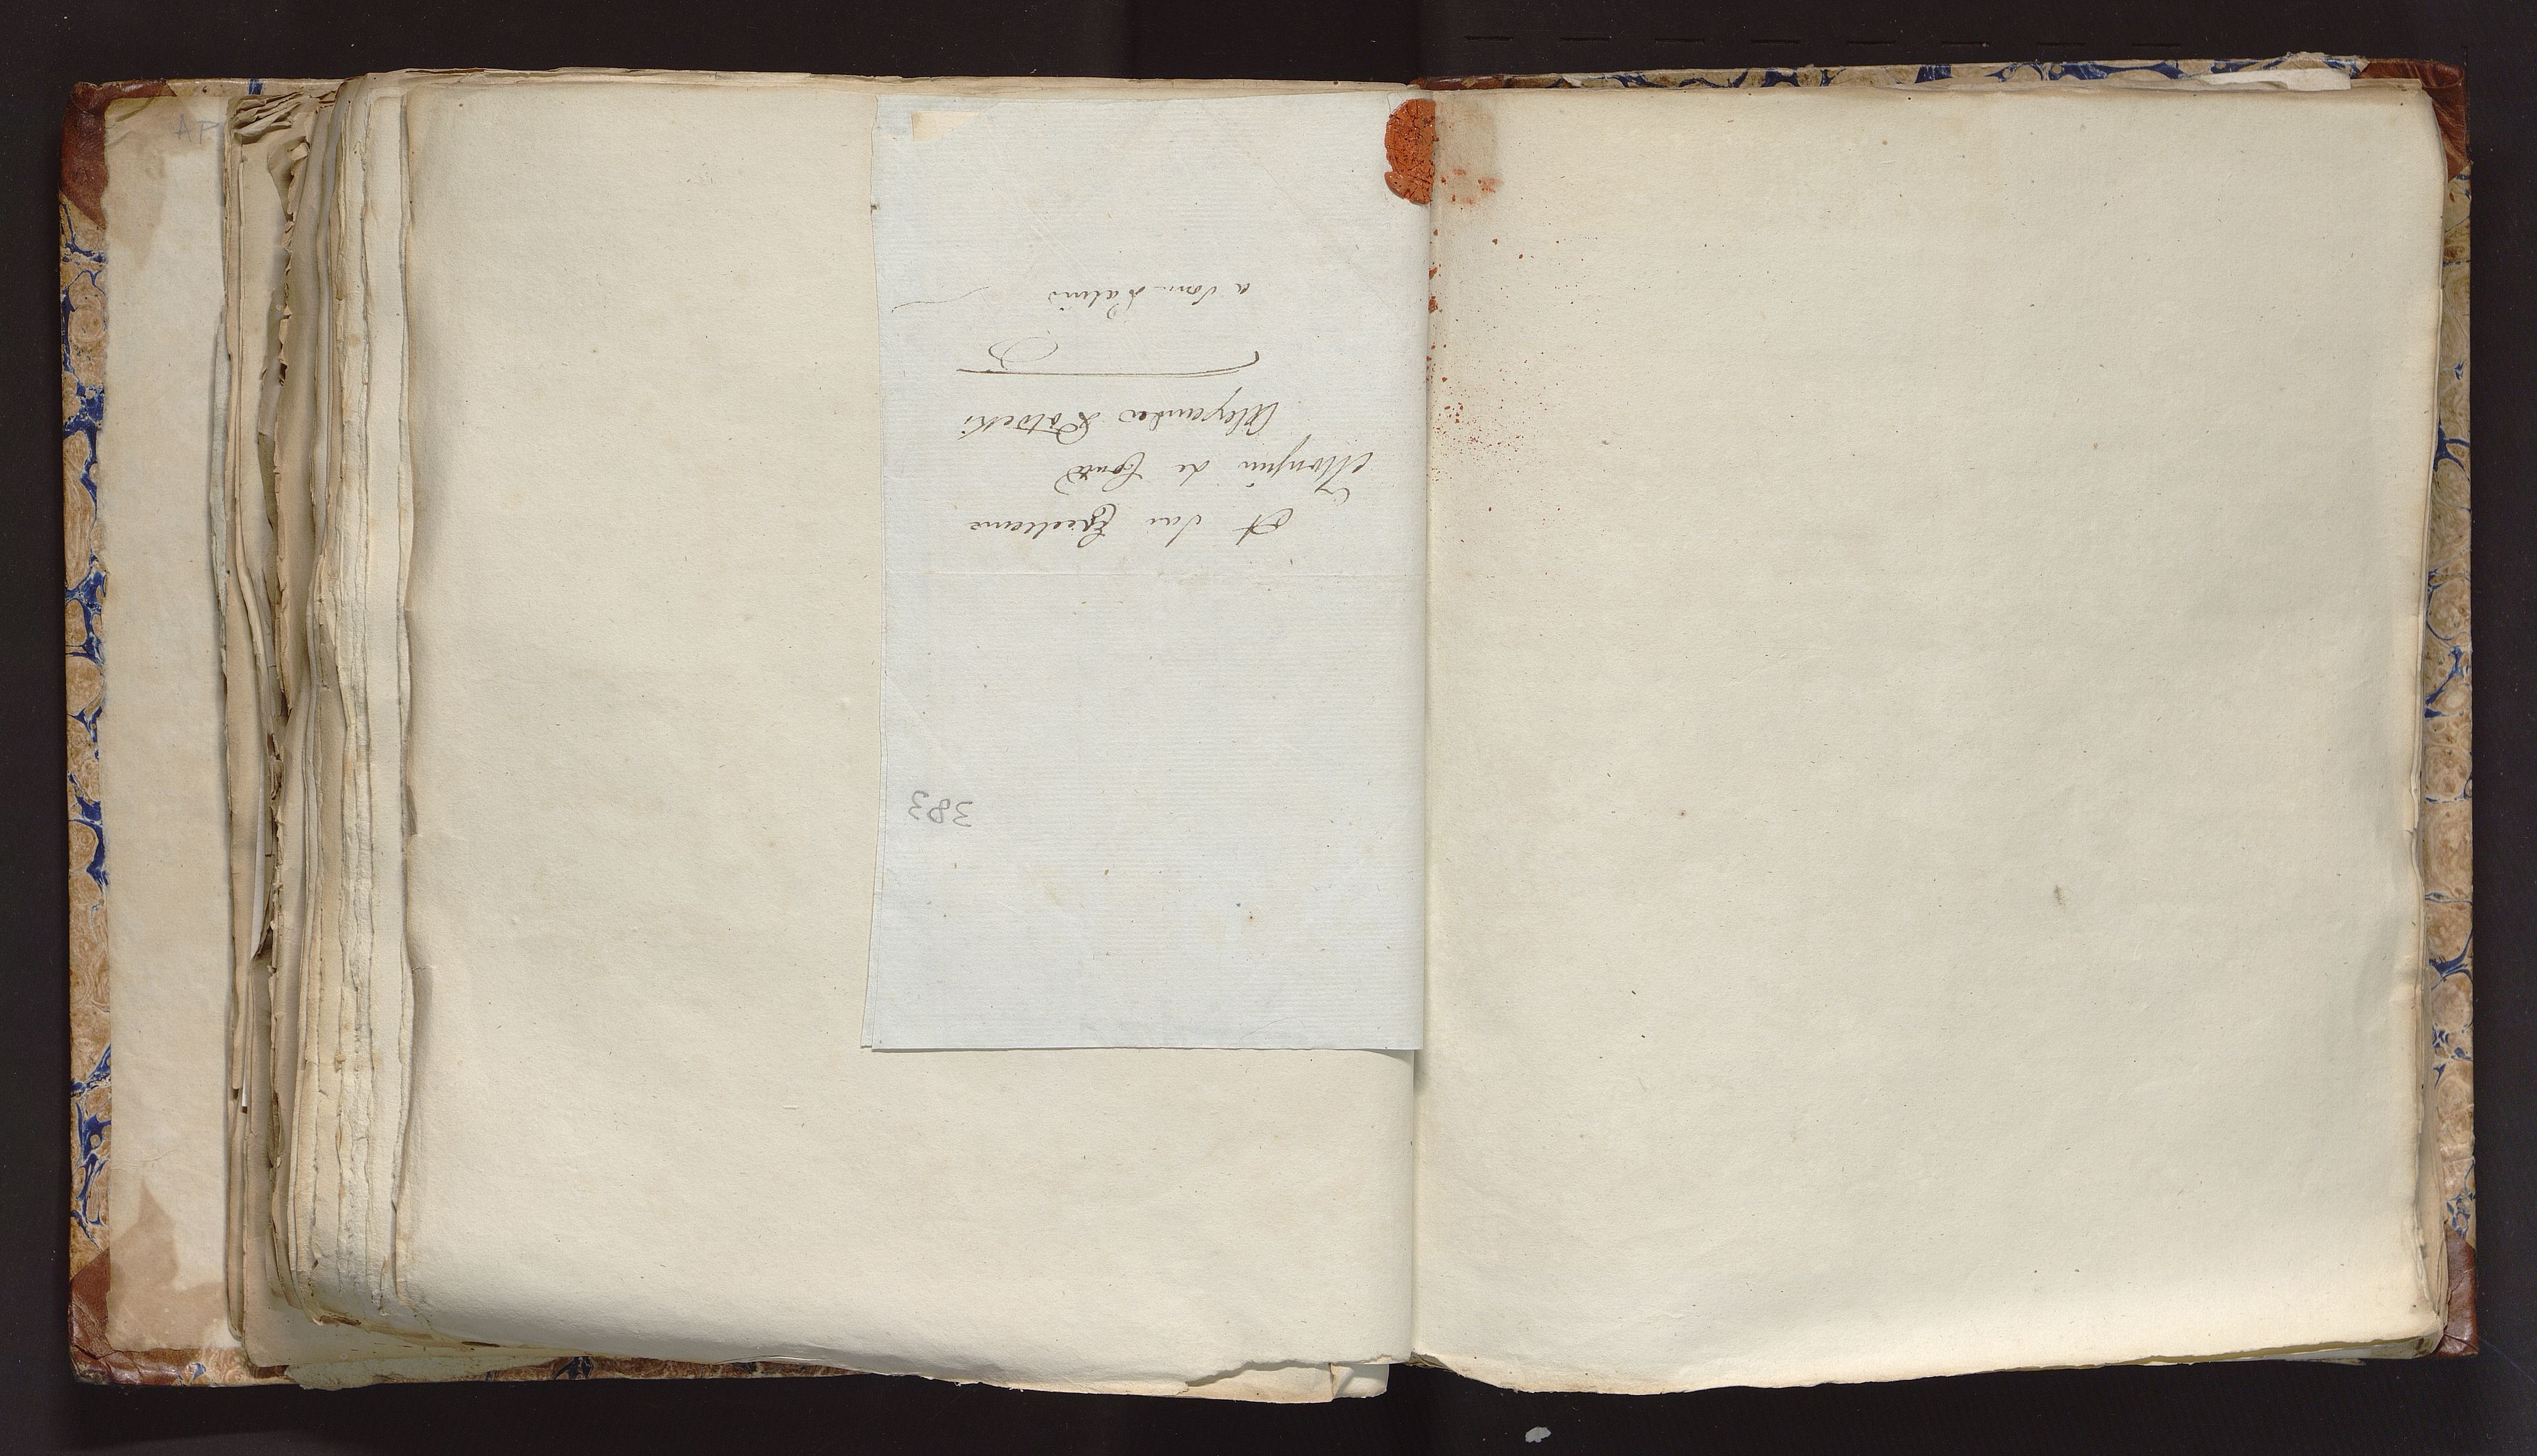 A Son Excellence
Monsieur le Comte
Alexandre Potocki
a Son Palais
383
AP